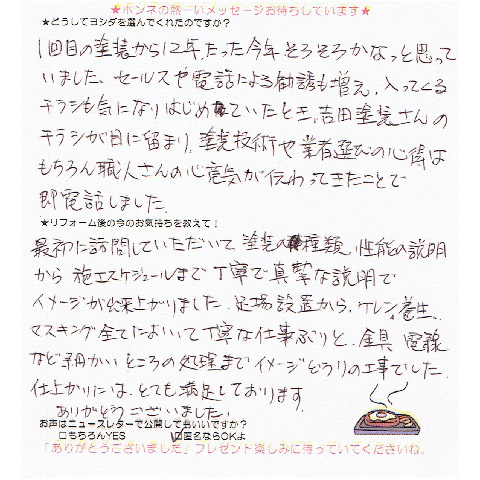 ★ホンネの熱ーいメッセージお待ちしています★
★どうしてヨシダを選んでくれたのですか?
1回目の塗装から12年たった今年そろそろかなっと思って
いました、セールスや電話による勧誘も増え、入ってくる
チラシも気になりはじめていたとき、吉田塗装さんの
チラシが目に留まり、塗装技術や業者選びの心得は
もちろん職人さんの心意気が伝わってきたことで
即電話しました。
★リフォーム後の今のお気持ちを教えて!
最初に訪問していただいて 塗装の種類、性能の説明
から 施工スケジュールまで丁寧で真摯な説明で
イメージが出来上がりました。足場設置から、ケレン、養生、
マスキング全てにおいて丁寧な仕事ぶりと、金具、電線
など細かいところの処理までイメージどうりの工事でした。
仕上がりには、とても満足しております。
ありがとうございました。
お声はニュースレターで公開してもいいですか?
□もちろんYES ☑匿名ならOKよ
「ありがとうございました」プレゼント楽しみに待っていてくださいね。